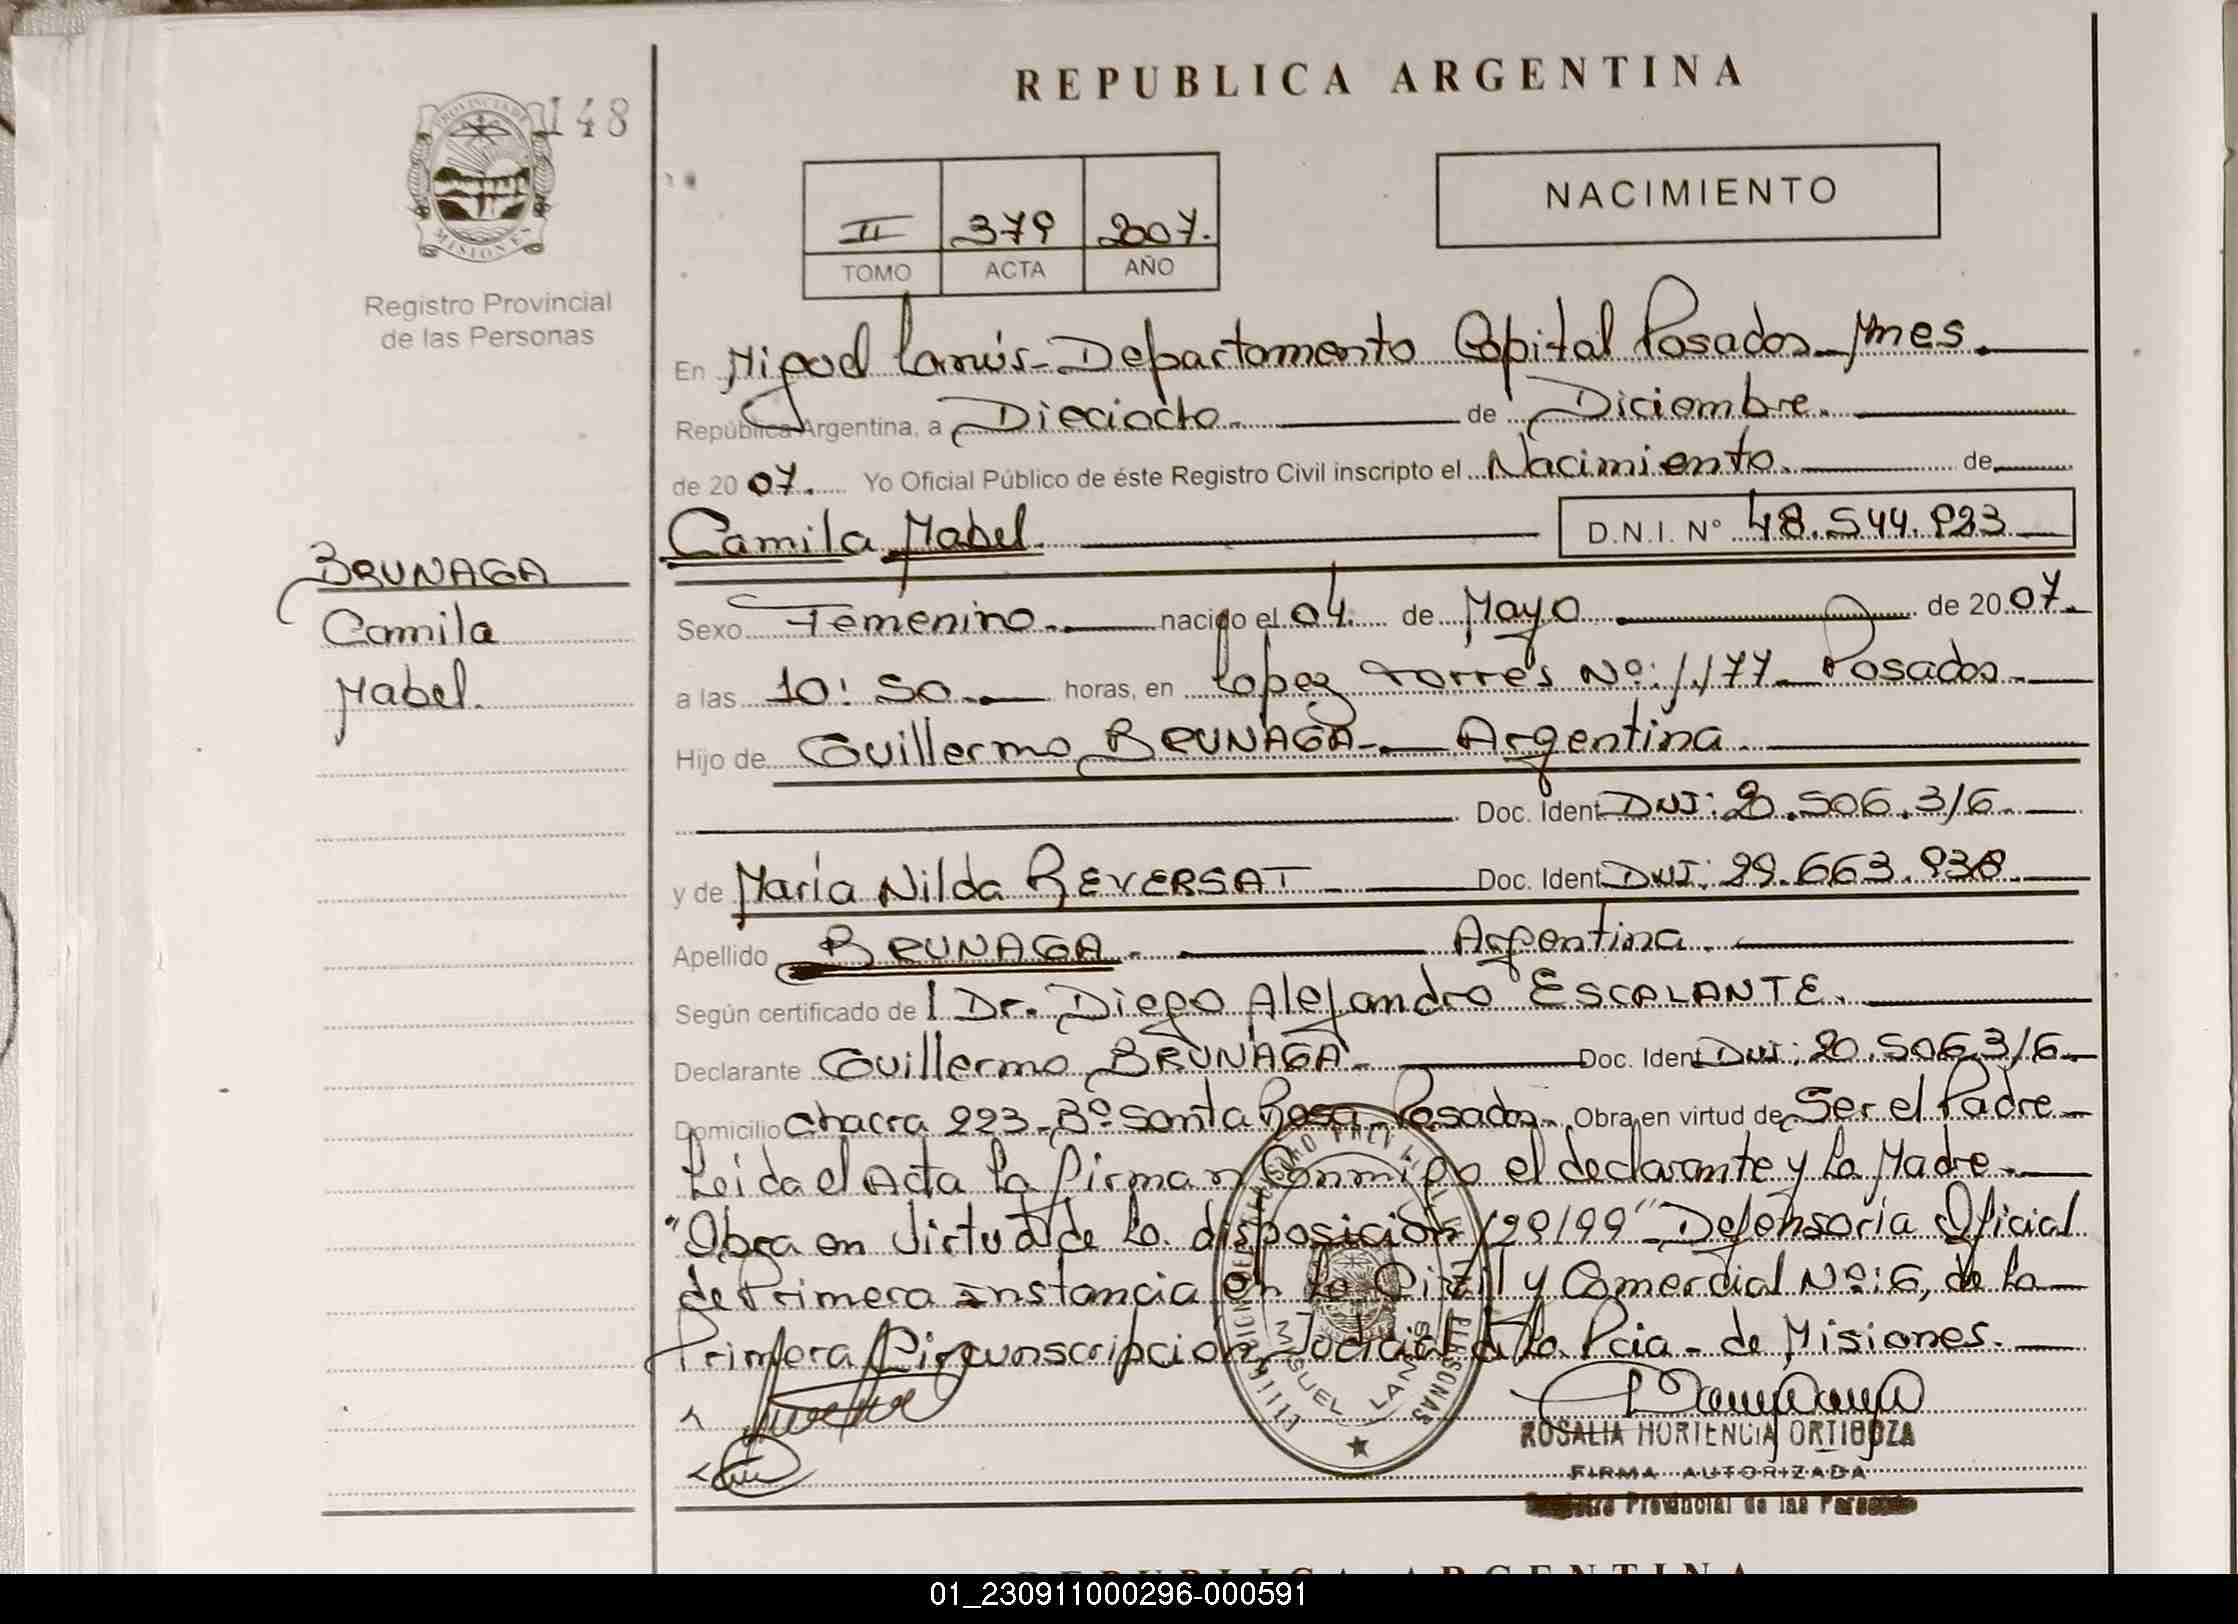 REPUBLICA ARGENTINA
148
PROVINCIA DE
MISIONES
Registro Provincial
de las Personas
NACIMIENTO
II 379 2007.
TOMO ACTA AÑO
En Miguel Lanús - Departamento Capital Posadas - Mnes.
República Argentina, a Dieciocho de Diciembre.
de 2007. Yo Oficial Público de éste Registro Civil inscripto el Nacimiento. de
Camila Mabel D.N.I. N° 48.544.923
BRUNAGA
Camila
Mabel.
Sexo Femenino. nacido el 04. de Mayo de 2007.
a las 10:50 horas, en Lopez Torres Nº: 1.177 - Posadas.
Hijo de Guillermo BRUNAGA - Argentina.
Doc. Ident DNI: 20.506.316.
y de María Nilda REVERSAT Doc. Ident DNI: 29.663.938.
Apellido BRUNAGA - Argentina.
Según certificado del Dr. Diego Alejandro ESCALANTE.
Declarante Guillermo BRUNAGA - Doc. Ident DNI: 20.506.316
Domicilio Chacra 223 - Bº Santa Rosa - Posadas - Obra en virtud de Ser el Padre
Leida el Acta la firman Conmigo el declarante y la Madre.
"Obra en Virtud de la disposición 129/99" Defensoría Oficial
de Primera Instancia en lo Civil y Comercial Nº: 6, de la
Primera Circunscripción Judicial de la Pcia - de Misiones.
MIGUEL LANUS
ROSALIA HORTENCIA ORTIGOZA
FIRMA AUTORIZADA
Registro Provincial de las Personas
REPUBLICA ARGENTINA
01_230911000296-000591